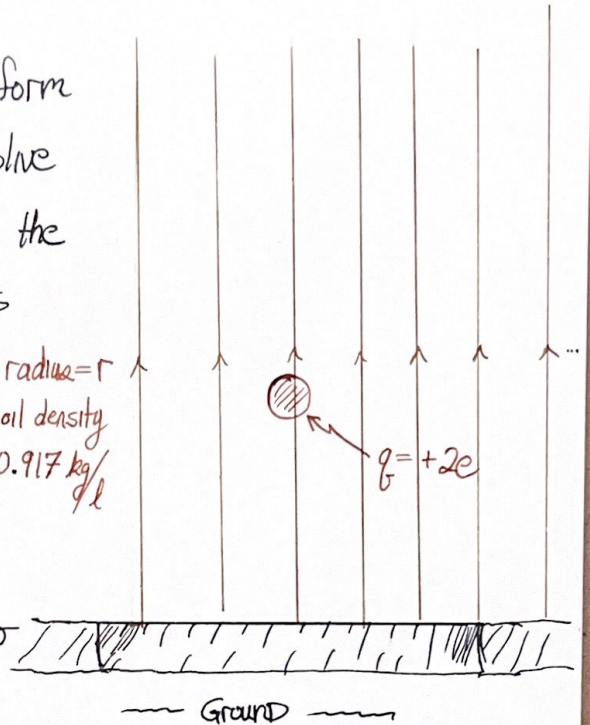 form
olive
the
s
radius=r
oil density
0.917 kg/l
q=+2e
Ground